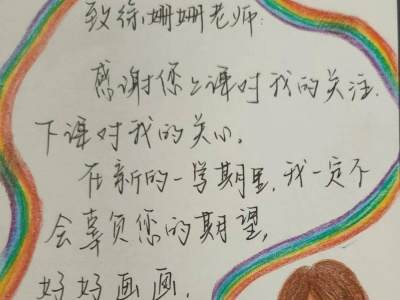 致徐姗姗老师:
感谢您上课对我的关注.
下课对我的关心。
在新的一学期里,我一定不
会辜负您的期望,
好好画画,